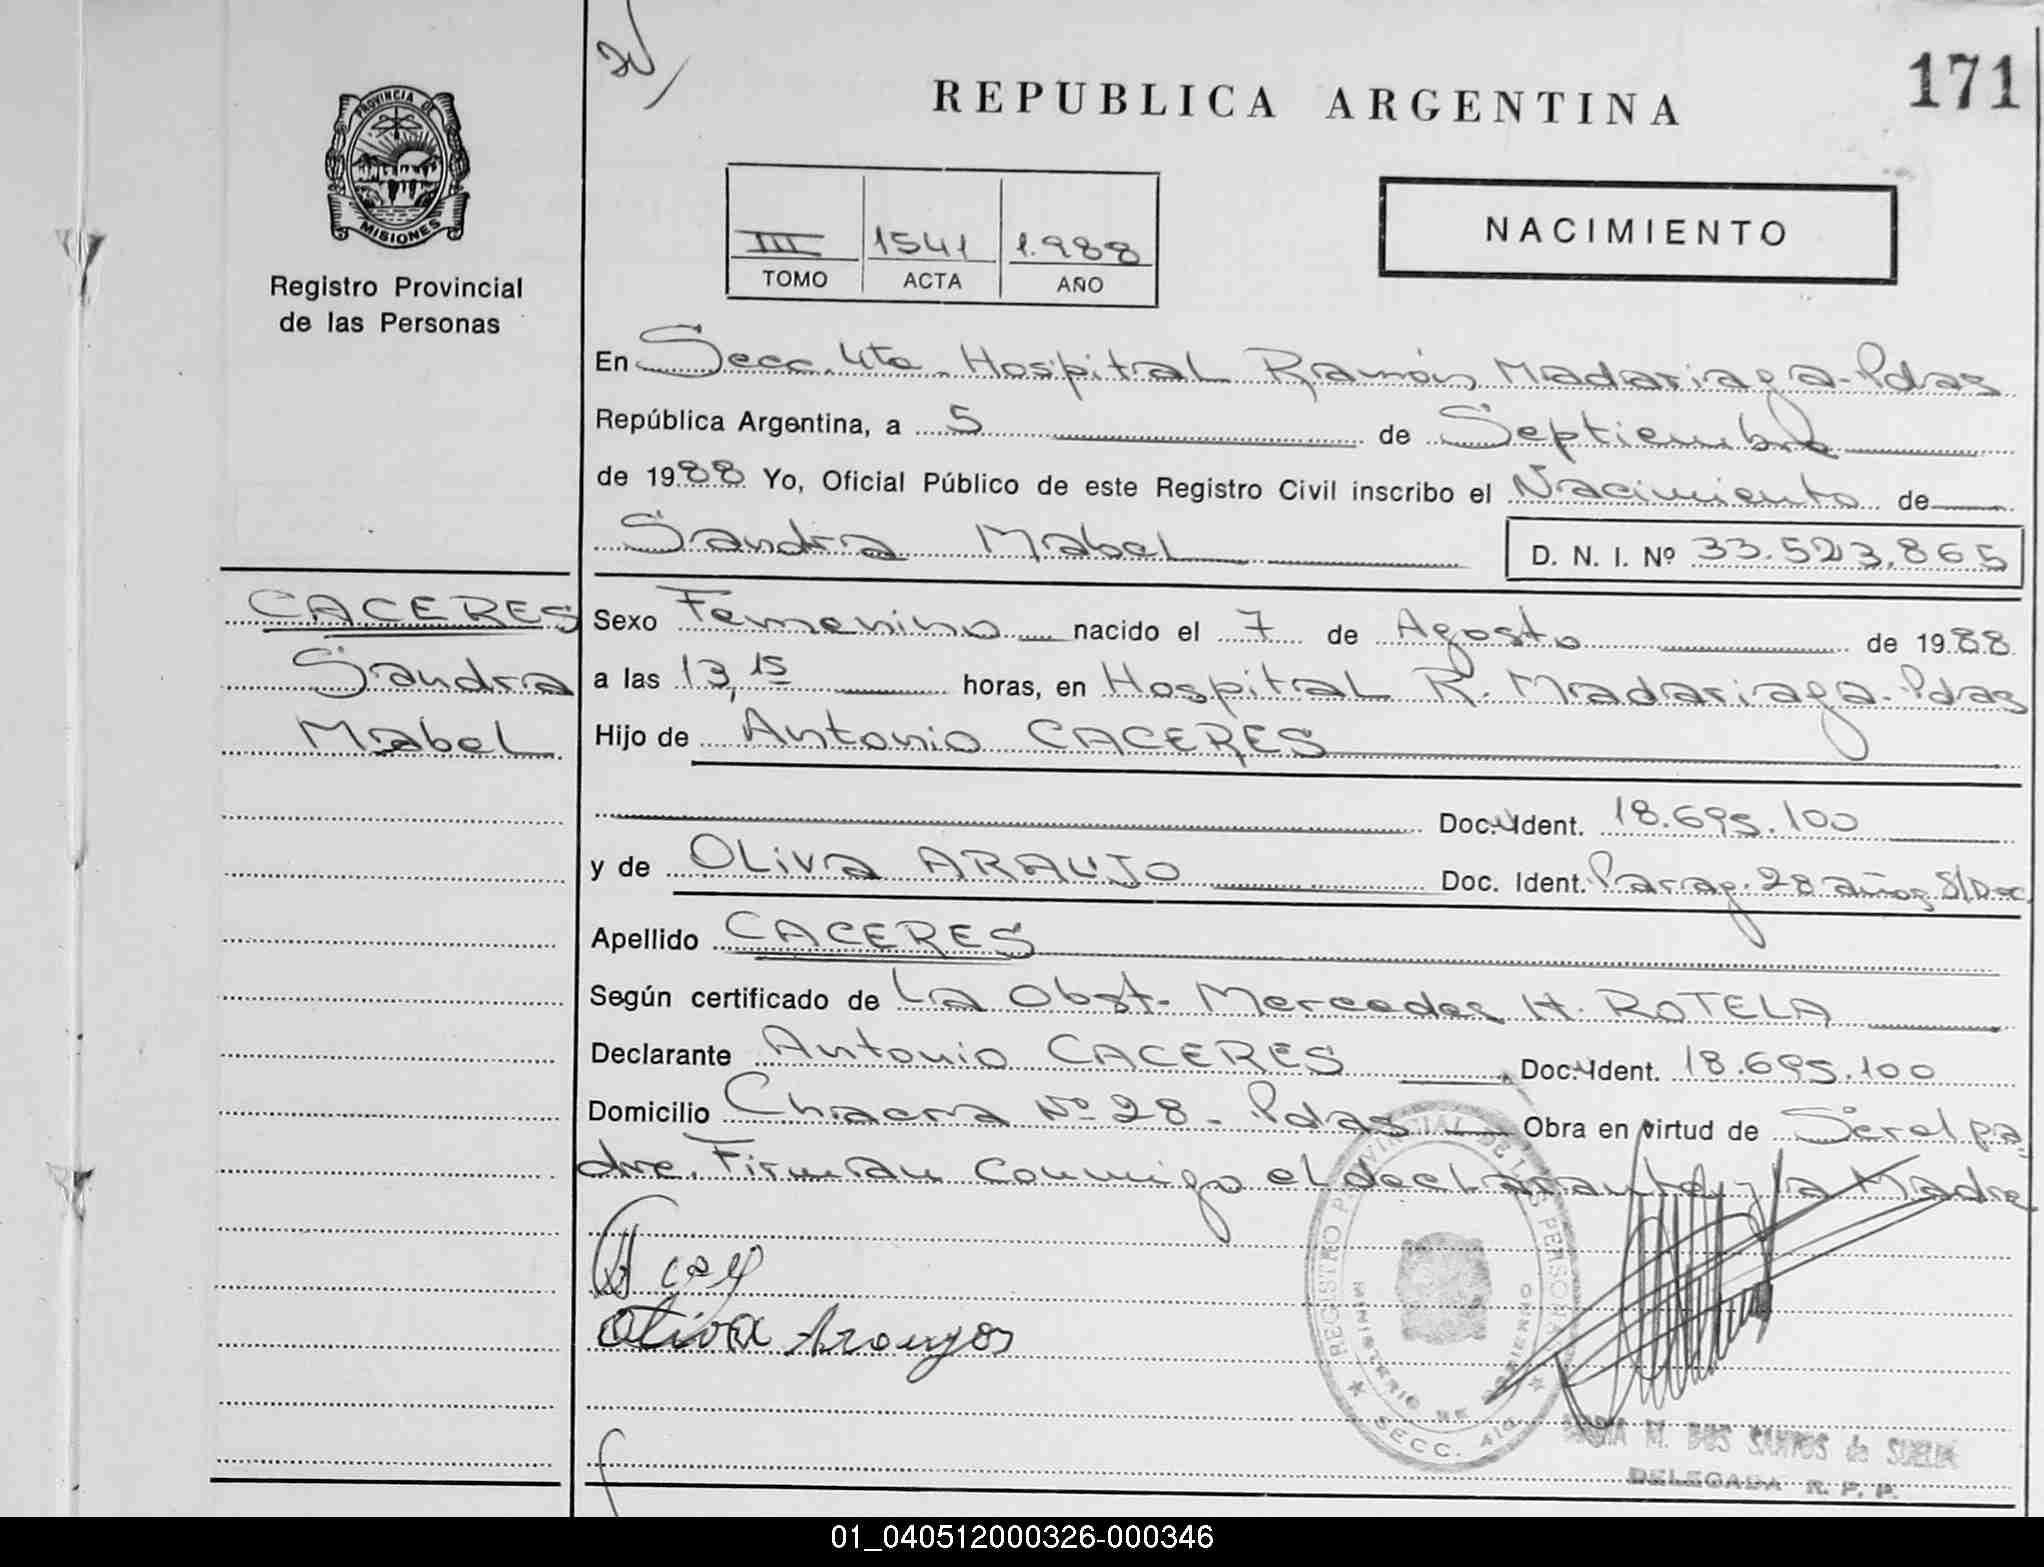 171
REPUBLICA ARGENTINA
PROVINCIA DE
MISIONES
Registro Provincial
de las Personas
NACIMIENTO
III 1541 1.988
TOMO ACTA AÑO
En Secc. 4ta. Hospital Ramón Madariaga - Pdas
República Argentina, a 5 de Septiembre
de 1988 Yo, Oficial Público de este Registro Civil inscribo el Nacimiento de
Sandra Mabel D. N. I. Nº 33.523.865
CACERES
Sandra
Mabel
Sexo Femenino nacido el 7 de Agosto de 1988
a las 13,15 horas, en Hospital R. Madariaga - Pdas
Hijo de Antonio CACERES
Doc. Ident. 18.695.100
y de OLiva ARAUJO Doc. Ident. Parag. 28 años S/Doc
Apellido CACERES
Según certificado de La Obst. Mercedes H. ROTELA
Declarante Antonio CACERES Doc. Ident. 18.695.100
Domicilio Chacra Nº 28 - Pdas Obra en virtud de Ser el pa
dre. Firman conmigo el declarante y la Madre
Oliva Araujos
REGISTRO PROVINCIAL DE LAS PERSONAS
MINISTERIO DE GOBIERNO
SECC. 4ta
M. DOS SANTOS de
DELEGADA R. P. P.
01_040512000326-000346